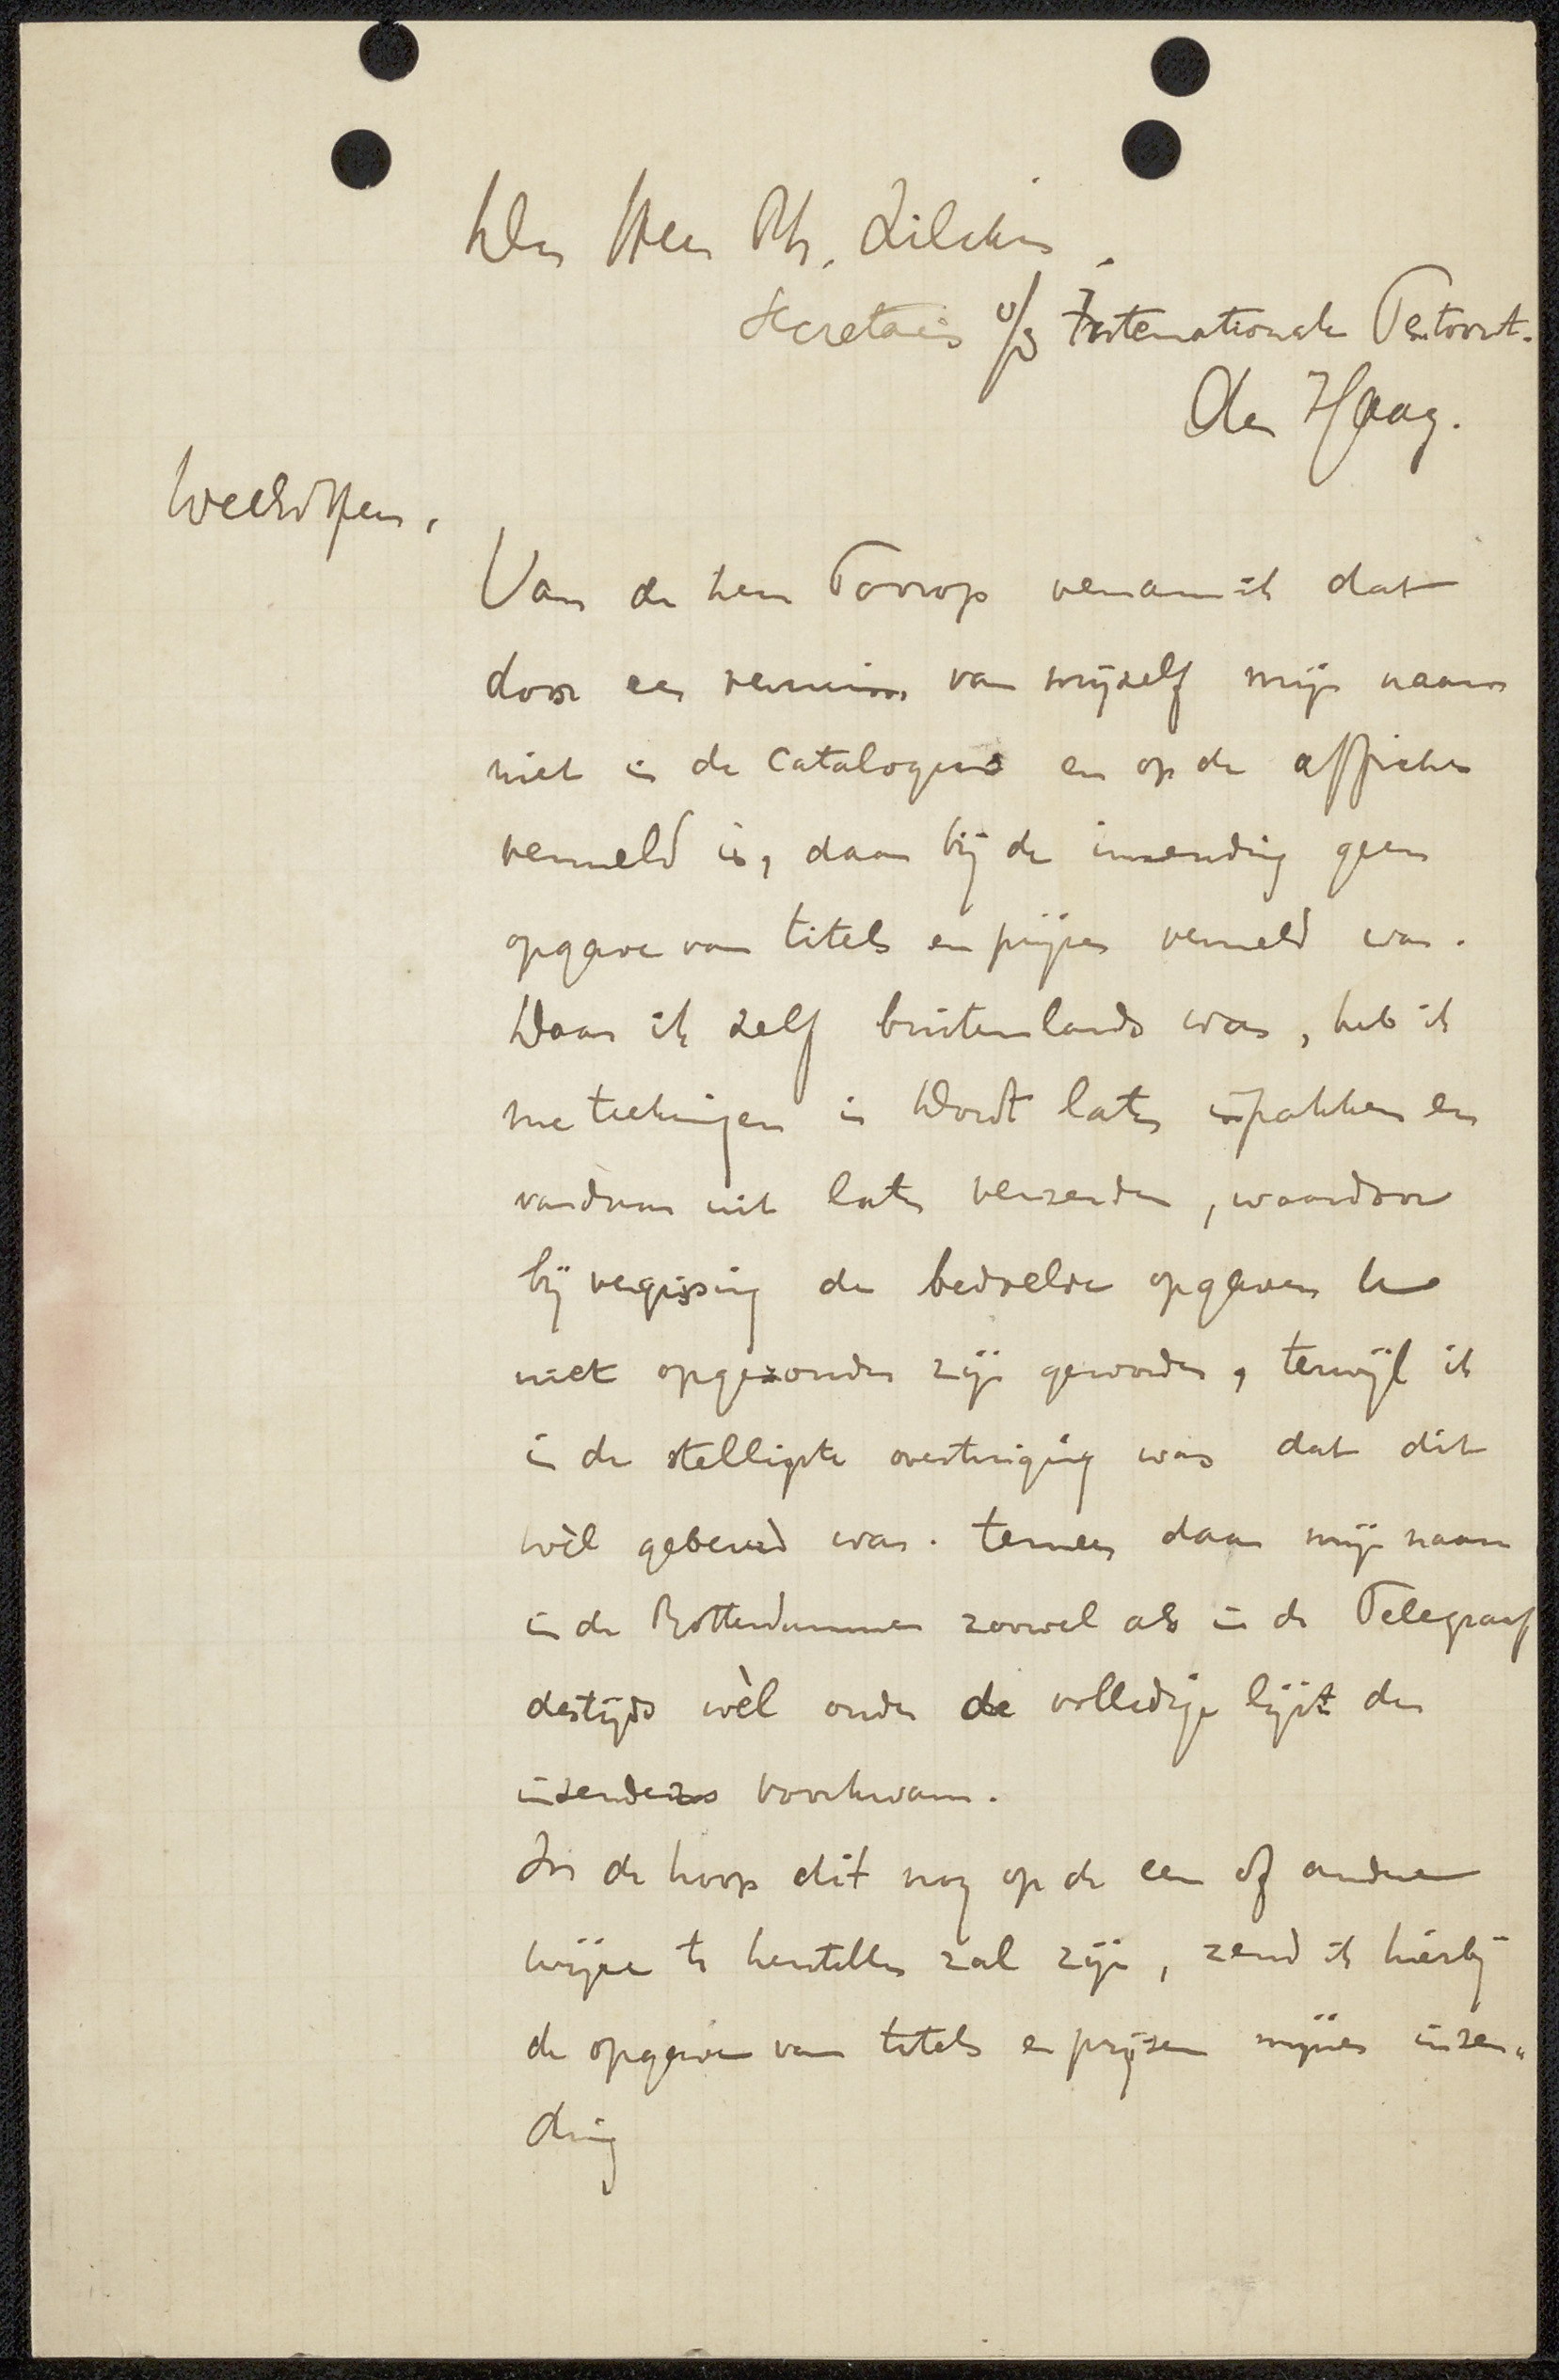 Den Heer Ph. Zilcken.
Secretaris v/d Internationale Tentoonst.
Den Haag.
WelEdHeer,
Van de heer Toorop vernam ik dat
door een verzuim van mijzelf mijn naam
niet in de Catalogus en op de affiches
vermeld is, daar bij de inzending geen
opgave van titels en prijzen vermeld was.
Daar ik zelf buitenlands was, heb ik
me teekeningen in Dordt laten inpakken en
vandaar uit laten verzenden, waardoor
bij vergissing de bedoelde opgaven
niet opgezonden zijn geworden, terwijl ik
in de stelligste overtuiging was dat dit
wèl gebeurd was. temeer daar mijn naam
in de Rotterdammer zoowel als in de Telegraaf
destijds wèl onder de volledige lijst der
inzenders voorkwam.
In de hoop dit nog op de een of andere
wijze te herstellen zal zijn, zend ik hierbij
de opgave van titels en prijzen mijner inzen„
ding